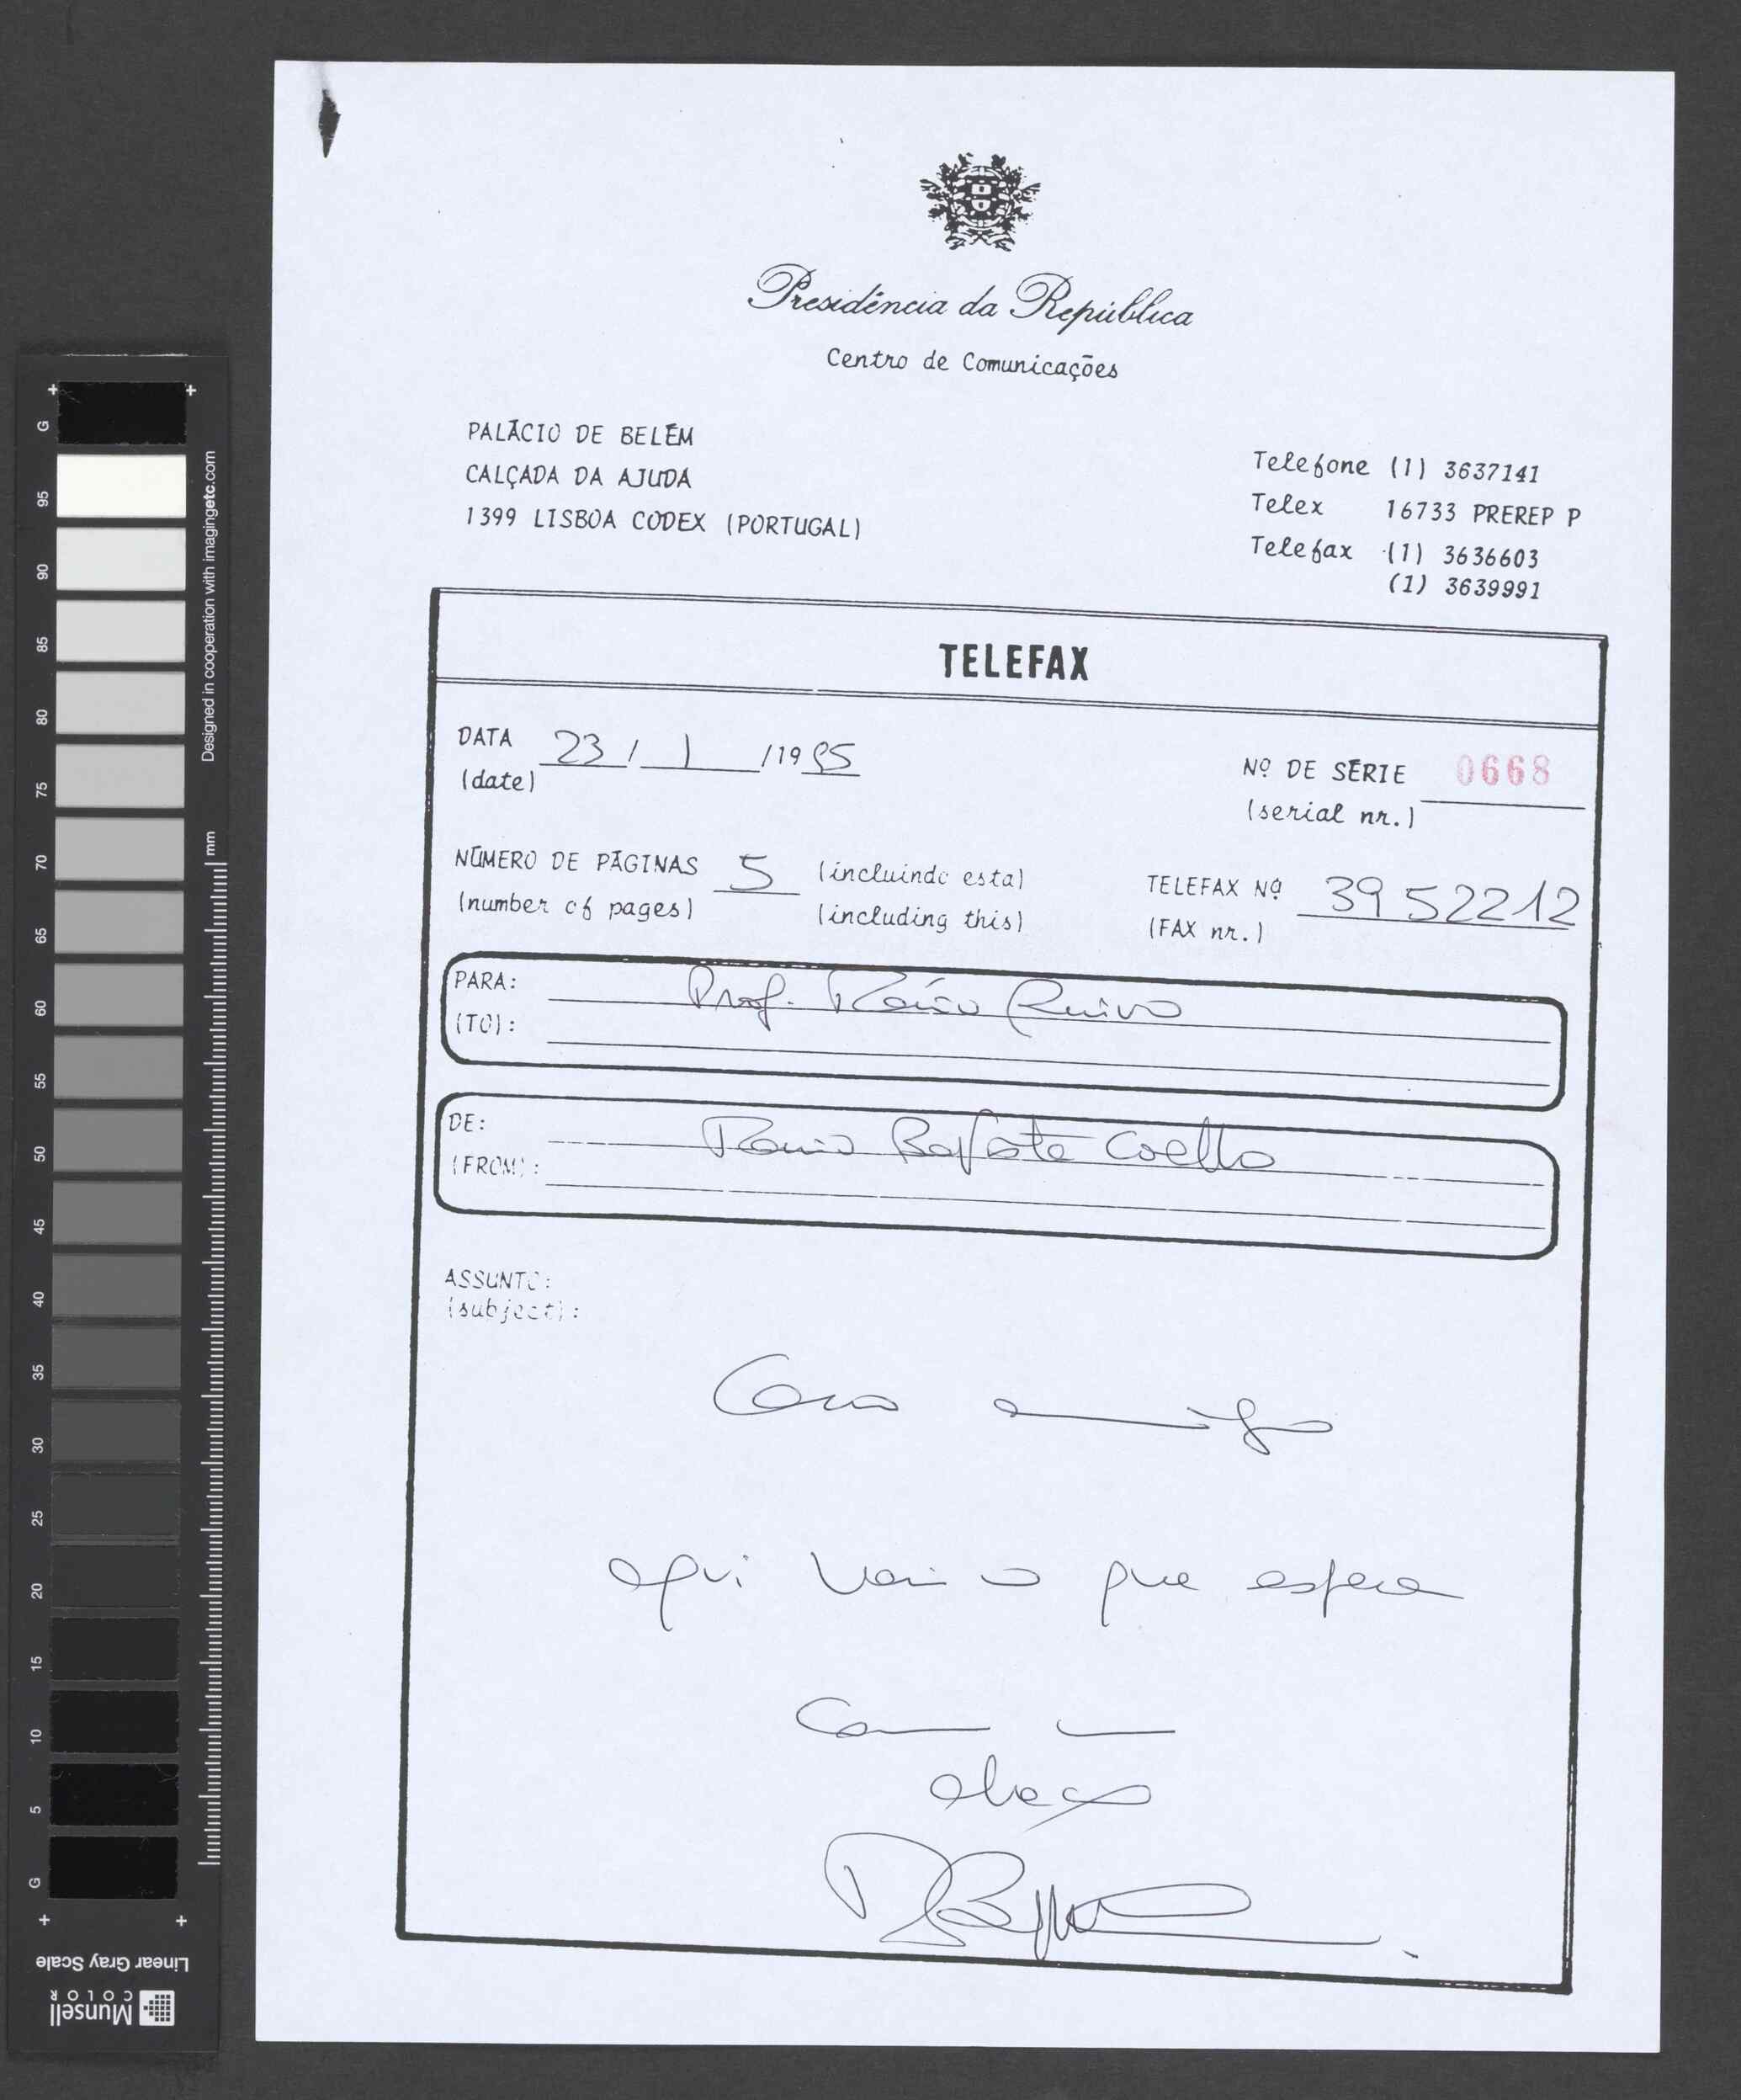 Presidência da República
Centro de Comunicações
PALÁCIO DE BELÉM
CALÇADA DA AJUDA
1399 LISBOA CODEX (PORTUGAL)
Telefone (1) 3637141
Telex 16733 PREREP P
Telefax (1) 3636603
(1) 3639991
TELEFAX
DATA 23 / 1 / 1995
(date)
Nº DE SÉRIE 0668
(serial nr.)
NÚMERO DE PÁGINAS 5 (incluindo esta)
(number of pages) (including this)
TELEFAX Nº 3952212
(FAX nr.)
PARA: Prof. Mário Ruivo
(TO):
DE: Mário Baptista Coelho
(FROM):
ASSUNTO:
(subject):
Caro amigo
aqui vai o que espera
Com um
abraço
G 95 90 85 80 75 70 65 60 55 50 45 40 35 30 25 20 15 10 5 G
Designed in cooperation with imagingetc.com
mm
Linear Gray Scale
Munsell
COLOR